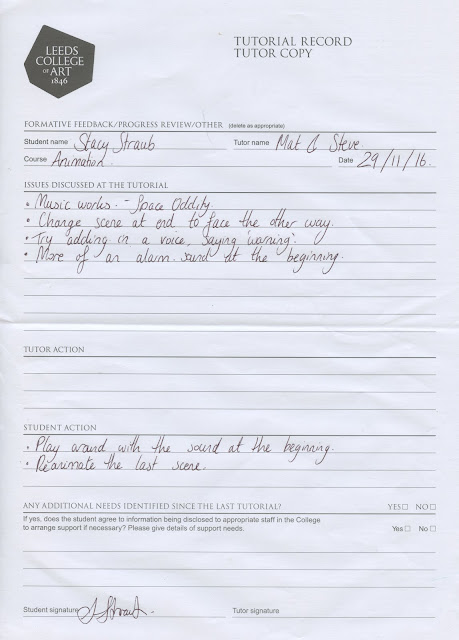 LEEDS
COLLEGE
OF ART
1846
TUTORIAL RECORD
TUTOR COPY
FORMATIVE FEEDBACK/PROGRESS REVIEW/OTHER (delete as appropriate)
Student name Stacy Straub Tutor name Mat & Steve
Course Animation. Date 29/11/16.
ISSUES DISCUSSED AT THE TUTORIAL
• Music works. - Space Oddity.
• Change scene at end to face the other way.
• Try adding in a voice, saying 'warning'.
• More of an alarm sound at the beginning.
TUTOR ACTION
STUDENT ACTION
• Play around with the sound at the beginning.
• Reanimate the last scene.
ANY ADDITIONAL NEEDS IDENTIFIED SINCE THE LAST TUTORIAL? YES☐ NO☐
If yes, does the student agree to information being disclosed to appropriate staff in the College
to arrange support if necessary? Please give details of support needs. Yes☐ No☐
Student signature S Straub. Tutor signature